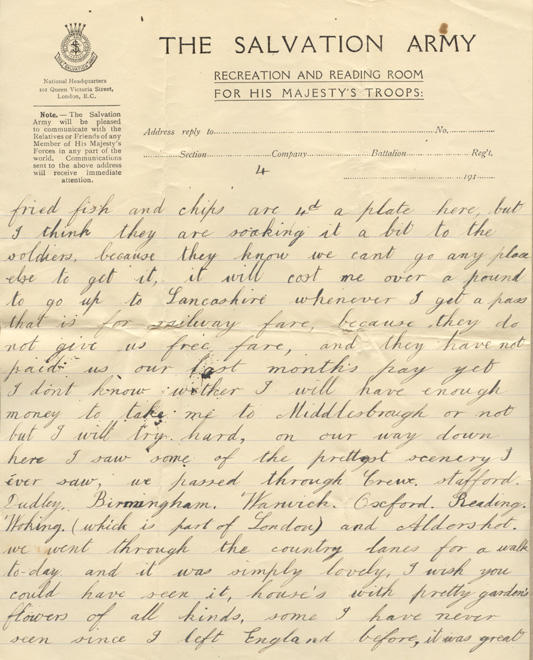 THE SALVATION ARMY
RECREATION AND READING ROOM
FOR HIS MAJESTY'S TROOPS:
National Headquarters
101 Queen Victoria Street,
London, E.C.
Note.— The Salvation
Army will be pleased
to communicate with the
Relatives or Friends of any
Member of His Majesty's
Forces in any part of the
world. Communications
sent to the above address
will receive immediate
attention.
Address reply to No.
Section Company Battalion Reg't.
4 191
fried fish and chips are 4d a plate here, but
I think they are soaking it a bit to the
soldiers, because they know we cant go any place
else to get it, it will cost me over a pound
to go up to Lancashire whenever I get a pass
that is for railway fare, because they do
not give us free fare, and they have not
paid us our last months pay yet
I dont know wether I will have enough
money to take me to Middlesbrough or not
but I will try hard, on our way down
here I saw some of the prettest scenery I
ever saw, we passed through Crewe. Stafford.
Dudley. Birmingham. Warwick. Oxford. Reading.
Woking. (which is part of London) and Aldershot.
we went through the country lanes for a walk
to-day. and it was simply lovely, I wish you
could have seen it, house's with pretty garden's
flowers of all kinds, some I have never
seen since I left England before, it was great